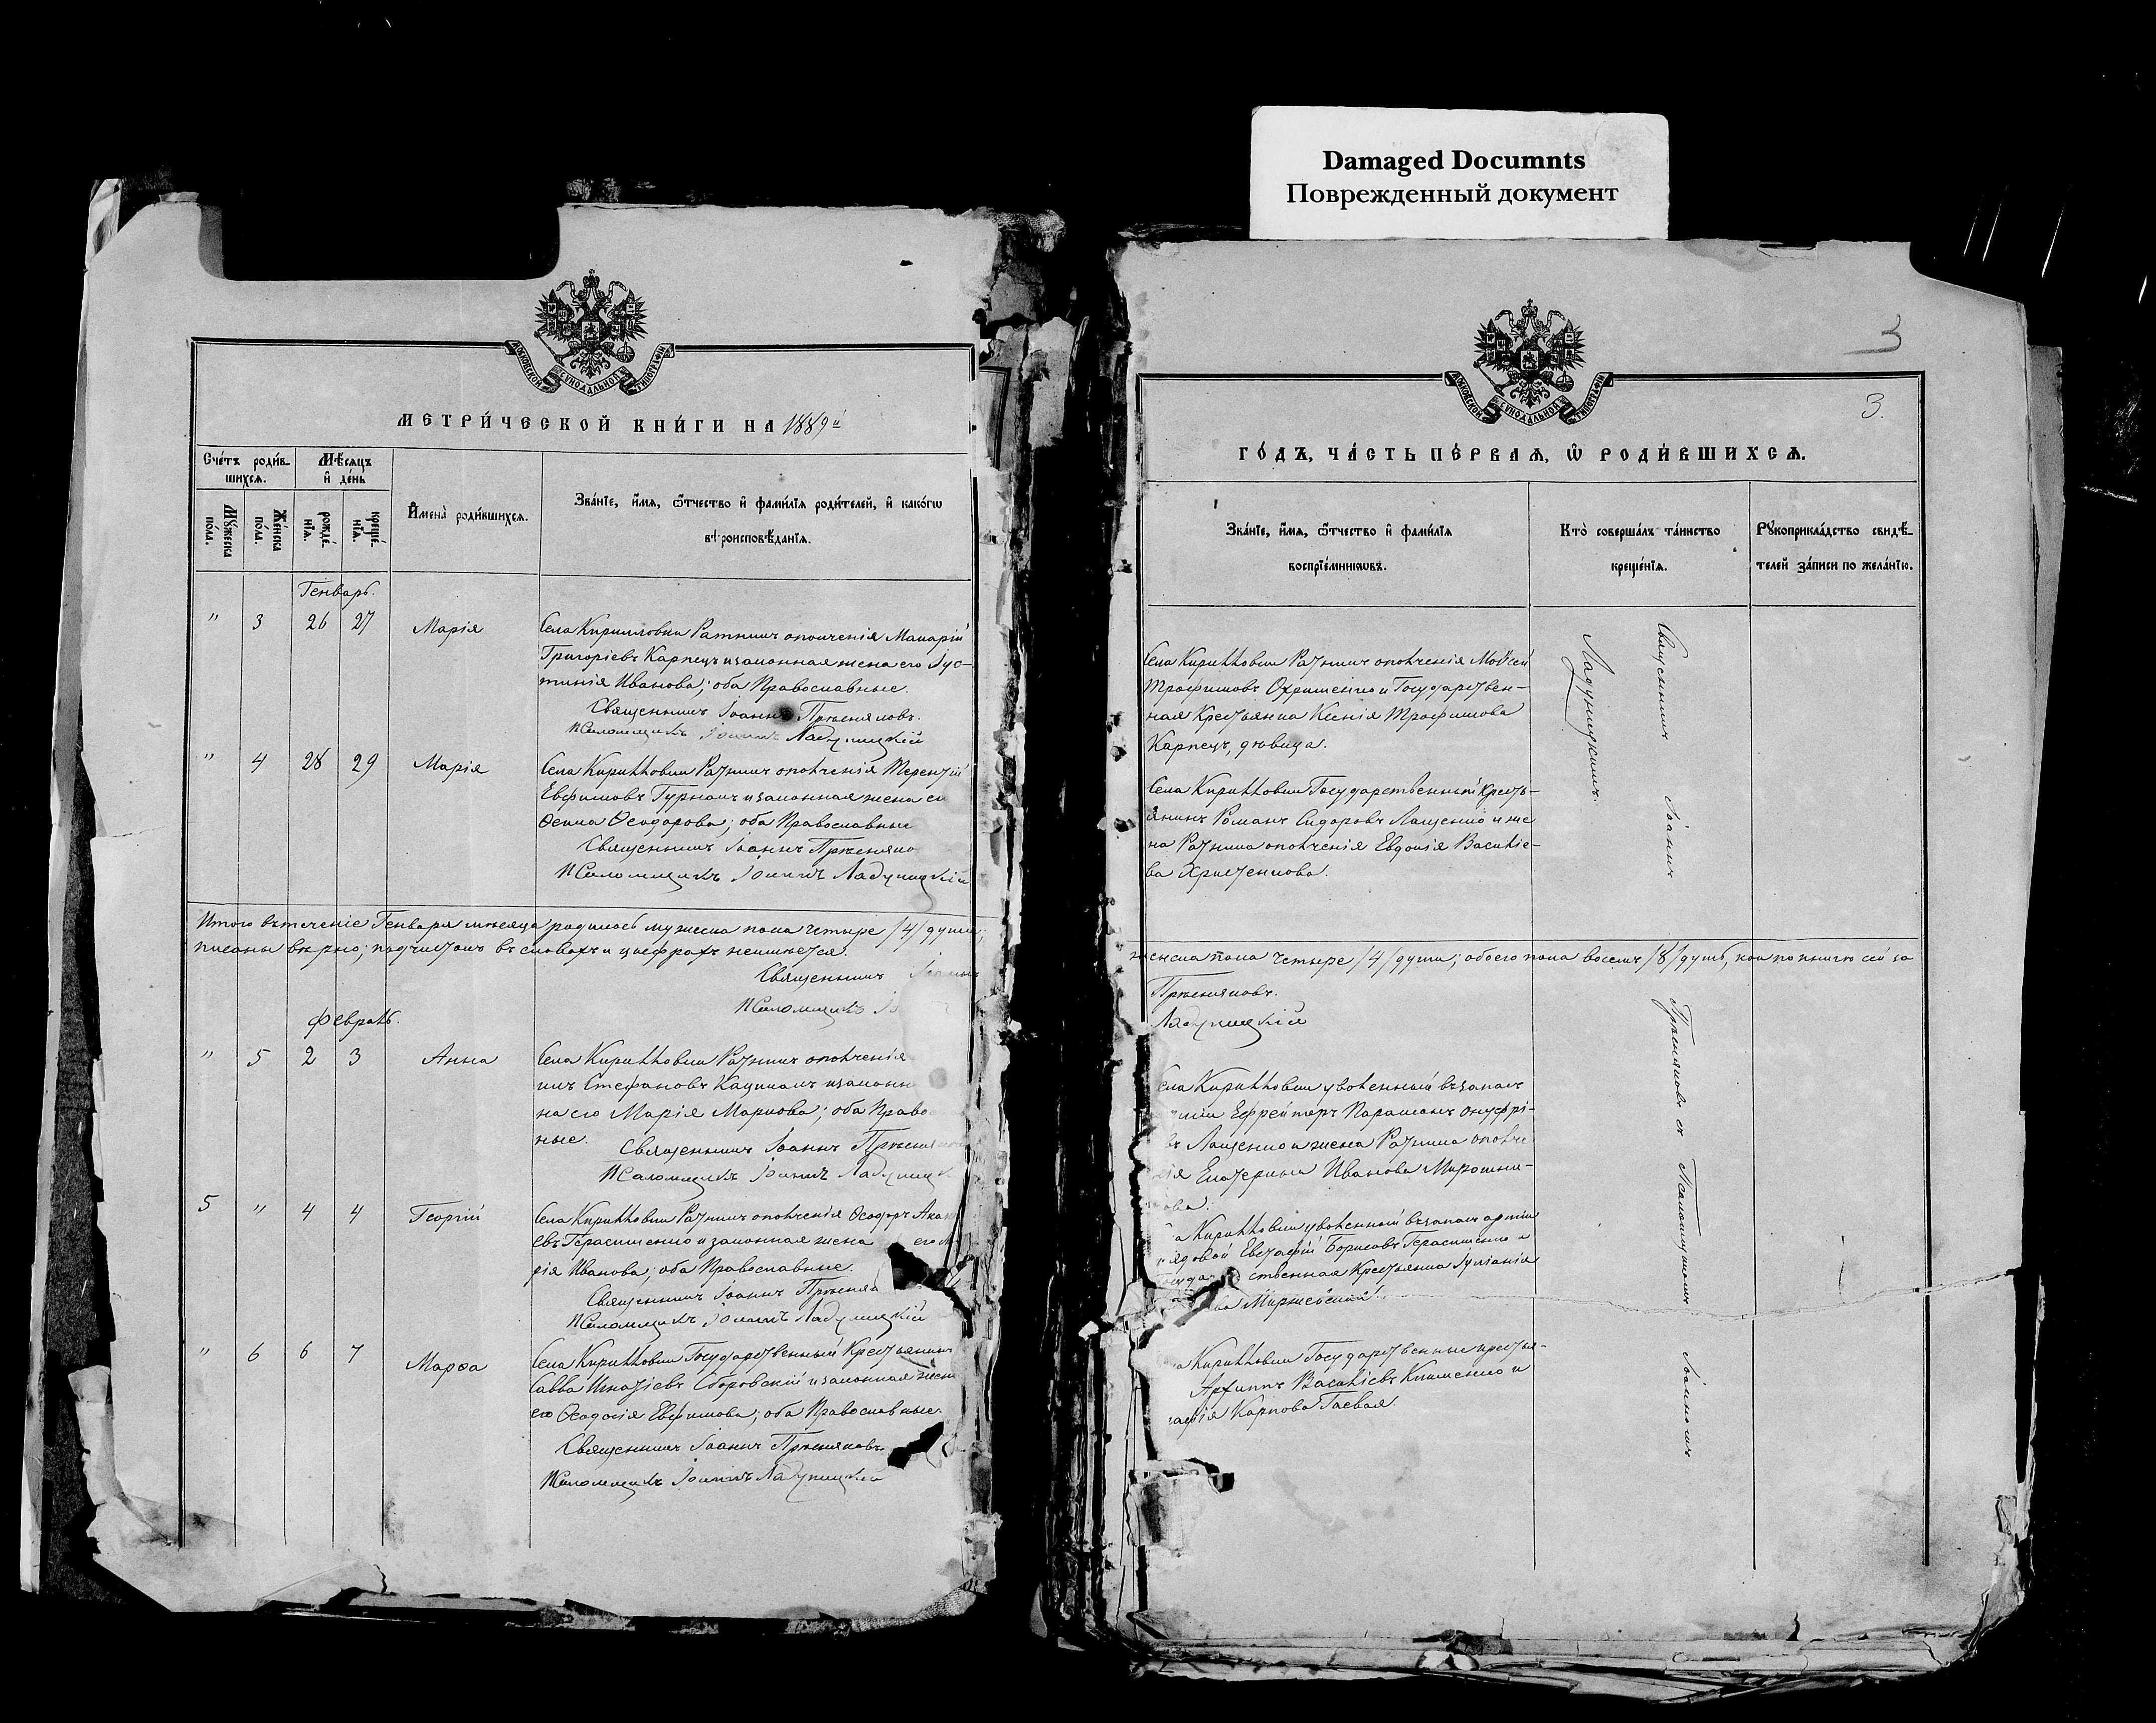 Damaged Documnts
Поврежденный документ
МОСКОВСКОЙ СѴНОДАЛЬНОЙ ТИПОГРАФІИ
МЕТРИ́ЧЕСКОЙ КНИ́ГИ НА 1889й
Сче́тъ роди́в-
шихсѧ.
Мѣ́сѧцъ
и҆ де́нь
Мꙋ́жеска
по́ла.
Же́нска
по́ла.
рожде́-
нїѧ.
креще́-
нїѧ.
И҆мена̀ роди́вшихсѧ.
Зва́нїе, и҆́мѧ, ѻ҆́тчество и҆ фами́лїѧ роди́телей, и҆ како́гѡ
вѣроисповѣ́данїѧ.
Генварь.
" 3 26 27 Марія
Села Кирилловки Ратникъ ополченія Макарій
Григоріевъ Карпецъ и законная жена его Іус-
тинія Иванова; оба Православные.
Священникъ Іоаннъ Прѣсняковъ.
Псаломщикъ Іоаннъ Ладуницкій
" 4 28 29 Марія
Села Кирилловки Ратникъ ополченія Терентій
Евфимовъ Гуржій и законная жена
Ѳекла Ѳеодорова; оба Православные
Священникъ Іоаннъ Прѣсняко
Псаломщикъ Іоаннъ Ладуницкій
Итого въ теченіе Генваря мѣсяца родилось мужеска пола четыре /4/ души;
писаны вѣрно; подчистокъ въ словахъ и цыфрахъ неимѣется.
Священникъ Іоаннъ
Псаломщикъ
Февраль.
" 5 2 3 Анна
Села Кирилловки Ратникъ ополченія
Стефановъ и законн
на его Марія Маркова; оба Правос
ные.
Священникъ Іоаннъ Прѣсняков
Псаломщикъ Іоаннъ Ладуницк
5 " 4 4 Георгій
Села Кирилловки Ратникъ ополченія Ѳеодоръ
евъ Герасименко и законная жена его Ма
рія Иванова; оба Православные.
Священникъ Іоаннъ Прѣсняк
Псаломщикъ Іоаннъ Ладуницкій
" 6 6 7 Марѳа
Села Кирилловки Государственный Крестьянинъ
Савва Игнатіевъ Сборовскій и законная жена
его Ѳеодосія Евфимова; оба Православные.
Священникъ Іоаннъ Прѣсняковъ
Псаломщикъ Іоаннъ Ладуницкій
3
3.
МОСКОВСКОЙ СѴНОДАЛЬНОЙ ТИПОГРАФІИ
ГО́ДЪ, ЧА́СТЬ ПЕ́РВАѦ, Ѡ҆ РОДИ́ВШИХСѦ.
Зва́нїе, и҆́мѧ, ѻ҆́тчество и҆ фами́лїѧ
воспрїе́мникѡвъ.
Кто̀ соверша́лъ та́инство
креще́нїѧ.
Рꙋкоприкла́дство свидѣ́-
телей за́писи по жела́нїю.
Села Кирилловки Ратникъ ополченія Моѵсей
Трофимовъ Охрименко и Государствен-
ная Крестьянка Ксенія Трофимова
Карпецъ, дѣвица.
Села Кирилловки Государственный Кресть-
янинъ Романъ Сидоровъ Лащенко и же
на Ратника ополченія Евдокія Василіе-
ва
женска пола четыре /4/ души; обоего пола восемь /8/ душъ, кои по книгѣ сей за
Прѣсняковъ.
Ладуницкій
Села Кирилловки уволенный въ запасъ
арміи Ефрейторъ Онуфрі-
въ Лащенко и жена Ратника ополче
нія Екатерина Иванова Мирошни-
кова.
а Кирилловки уволенный въ запасъ арміи
рядовой Евстафій Борисовъ Герасименко и
Госуда ственная Крестьянка Іуліанія
ва
а Кирилловки Государственные крестья-
Архиппъ Василіевъ Клименко и
Карпова Гаевая.
Священникъ Іоаннъ Прѣсняковъ съ Псаломщикомъ Іоанномъ
Ладуницкимъ.